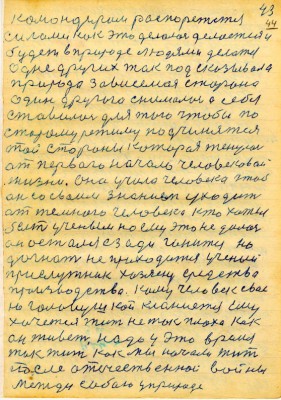 43
44
командирам распоряжатся
силами как это делалося делается и
будет в природе людями делатся
одне других так подсказывала
природа зависемая сторона
один другого снималося а себя
ставилося для того чтобы по
старому режиму подчинятся
той стороны которая тянулася
от первого начала человеческой
жизни. Она учила человека чтоб
он со своим знанием уходил
от темного человека кто хотел
быть ученым но ему это не далося
он остался сзади гонить но
догнать не приходится ученый
прислужник хозяину средства
производства. Кому человек свое
ю головушкой кланяется ему
хочется жит не так плохо как
он живет. надо у это время
так жит как мы начали жит
после отечественной войны
между собою у природе